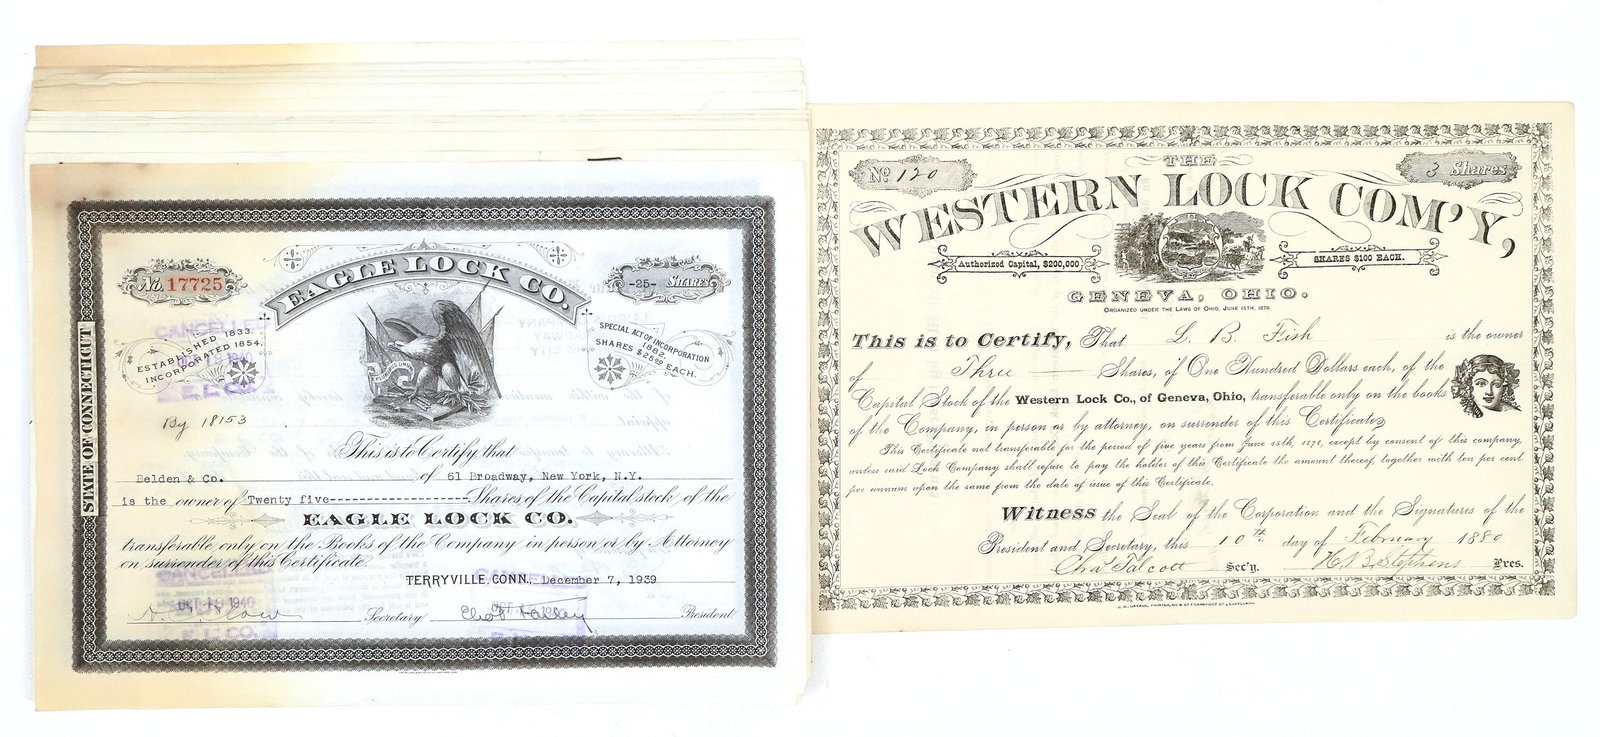 No. 17725
EAGLE LOCK CO.
-25- SHARES
CANCELLED
ESTABLISHED 1833.
INCORPORATED 1854.
1940
E. L. CO.
SPECIAL ACT OF INCORPORATION
1882.
SHARES $25.00 EACH.
STATE OF CONNECTICUT
By 18153
This is to Certify that
Belden & Co. of 61 Broadway, New York, N.Y.
is the owner of Twenty five------------------Shares of the Capital stock of the
EAGLE LOCK CO.
transferable only on the Books of the Company in person or by Attorney
on surrender of this Certificate.
TERRYVILLE, CONN., December 7, 1939
CANCELLED
OCT 10 1940
E. L. CO.
Secretary
President
THE
No 120
3 Shares
WESTERN LOCK COM'Y,
Authorized Capital, $200,000
SHARES $100 EACH.
GENEVA, OHIO.
ORGANIZED UNDER THE LAWS OF OHIO, JUNE 15TH, 1876.
This is to Certify, That L. B. Fish is the owner
of Three Shares, of One Hundred Dollars each, of the
Capital Stock of the Western Lock Co., of Geneva, Ohio, transferable only on the books
of the Company, in person or by attorney, on surrender of this Certificate
This Certificate not transferable for the period of five years from June 15th, 1878, except by consent of this company,
unless said Lock Company shall refuse to pay the holder of this Certificate the amount thereof, together with ten per cent.
per annum upon the same from the date of issue of this Certificate.
Witness the Seal of the Corporation and the Signatures of the
President and Secretary, this 10th day of February 1880
Chas Talcott Sec'y. H. B. Stephens Pres.